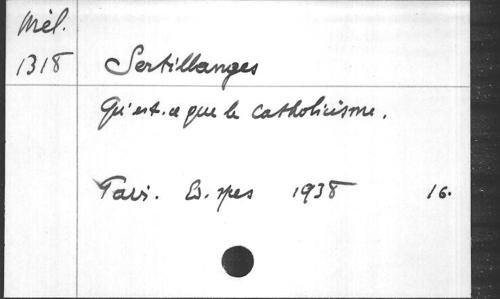 Mél.
1318 Sertillanges
Qu'est-ce que le catholicisme.
Paris. 1938 16.